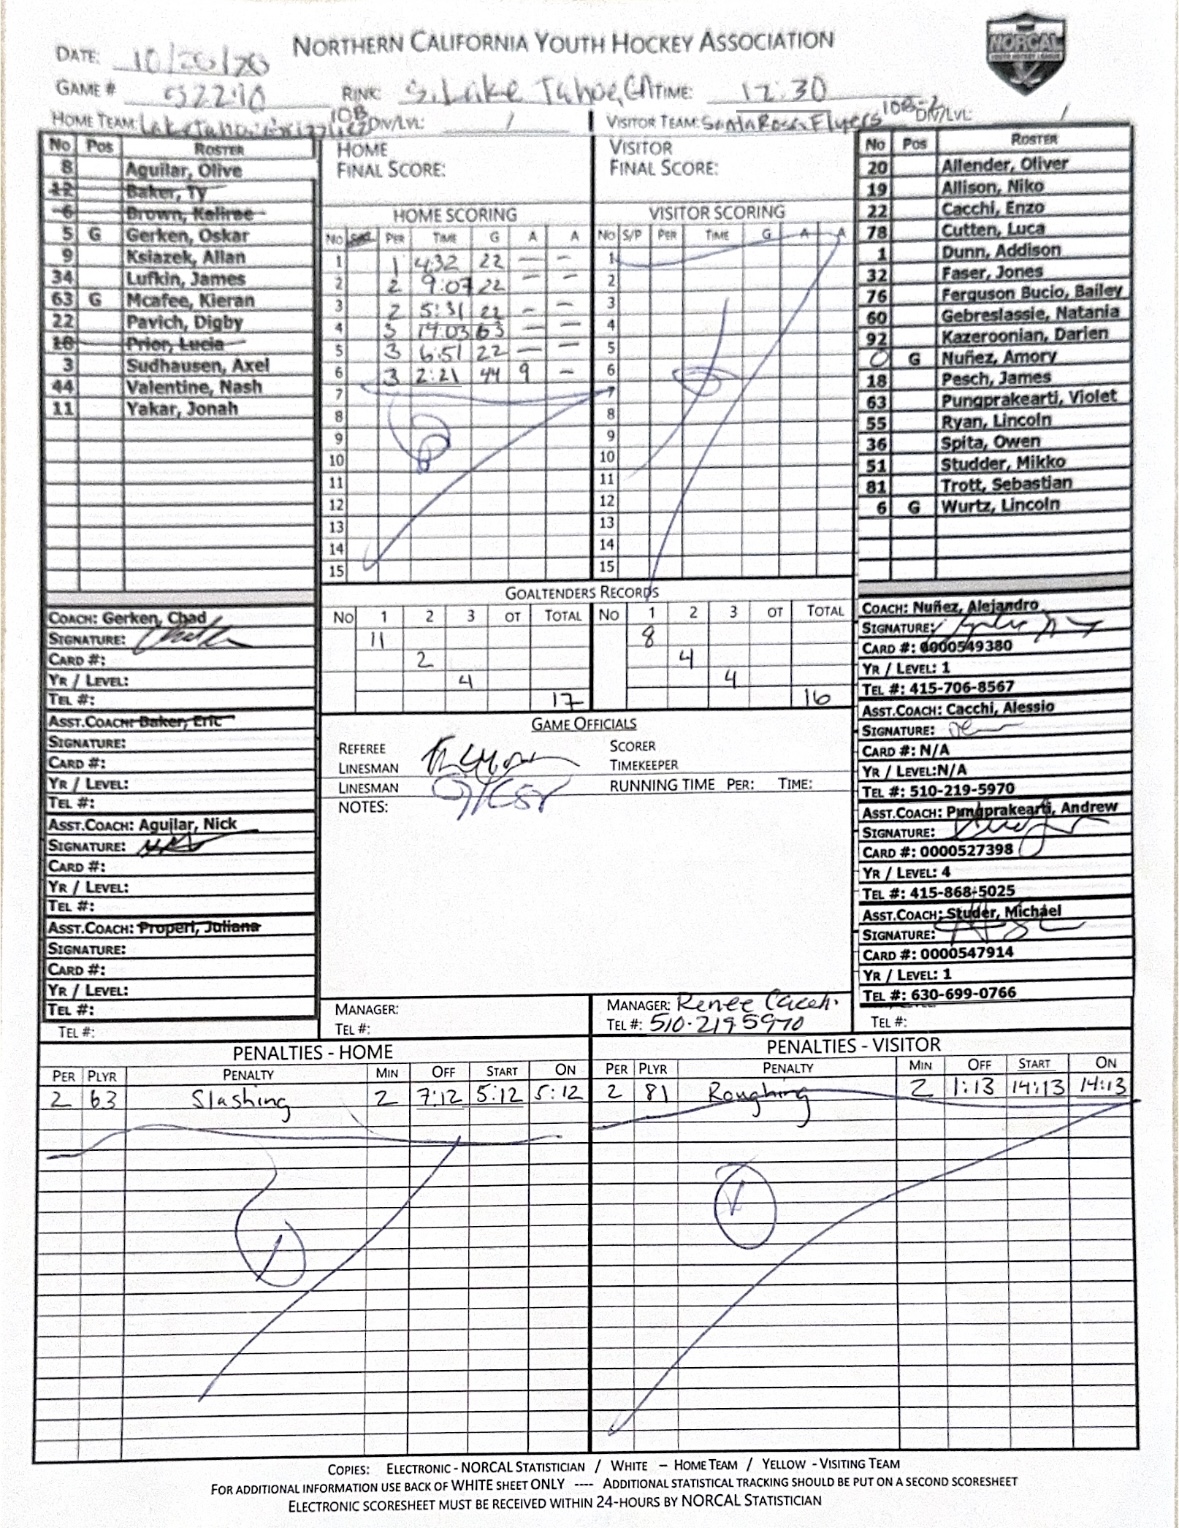 NORTHERN CALIFORNIA YOUTH HOCKEY ASSOCIATION
NORCAL
YOUTH HOCKEY LEAGUE
DATE: 10/26/
GAME # RINK: S. Lake Tahoe, CA TIME: 12:30
HOME TEAM: Lake Tahoe Grizzlies 10B DIV/LVL: / VISITOR TEAM: Santa Rosa Flyers 10B-2 DIV/LVL: /
No Pos ROSTER
8 Aguilar, Olive
12 Baker, Ty
6 Brown, Kalirae
5 G Gerken, Oskar
9 Ksiazek, Allan
34 Lufkin, James
63 G Mcafee, Kieran
22 Pavich, Digby
18 Prior, Lucia
3 Sudhausen, Axel
44 Valentine, Nash
11 Yakar, Jonah
HOME
FINAL SCORE:
VISITOR
FINAL SCORE:
HOME SCORING
NO PER TIME G A A
1 1 4:32 22 — –
2 2 9:07 22 — —
3 2 5:31 22 – –
4 3 14:03 63 — —
5 3 6:51 22 — –
6 3 2:21 44 9 –
7
8
9
10
11
12
13
14
15
VISITOR SCORING
NO S/P PER TIME G A A
1
2
3
4
5
6
7
8
9
10
11
12
13
14
15
No Pos ROSTER
20 Allender, Oliver
19 Allison, Niko
22 Cacchi, Enzo
78 Cutten, Luca
1 Dunn, Addison
32 Faser, Jones
76 Ferguson Bucio, Bailey
60 Gebreslassie, Natania
92 Kazeroonian, Darien
0 G Nuñez, Amory
18 Pesch, James
63 Pungprakearti, Violet
55 Ryan, Lincoln
36 Spita, Owen
51 Studder, Mikko
81 Trott, Sebastian
6 G Wurtz, Lincoln
GOALTENDERS RECORDS
NO 1 2 3 OT TOTAL NO 1 2 3 OT TOTAL
11 8
2 4
4 4
17 16
COACH: Gerken, Chad
SIGNATURE:
CARD #:
YR / LEVEL:
TEL #:
ASST.COACH: Baker, Eric
SIGNATURE:
CARD #:
YR / LEVEL:
TEL #:
ASST.COACH: Aguilar, Nick
SIGNATURE:
CARD #:
YR / LEVEL:
TEL #:
ASST.COACH: Properi, Juliana
SIGNATURE:
CARD #:
YR / LEVEL:
TEL #:
TEL #:
GAME OFFICIALS
REFEREE SCORER
LINESMAN TIMEKEEPER
LINESMAN RUNNING TIME PER: TIME:
NOTES:
MANAGER:
TEL #:
MANAGER: Renee Cacchi
TEL #: 510-219 5970
COACH: Nuñez, Alejandro
SIGNATURE:
CARD #: 0000549380
YR / LEVEL: 1
TEL #: 415-706-8567
ASST.COACH: Cacchi, Alessio
SIGNATURE:
CARD #: N/A
YR / LEVEL:N/A
TEL #: 510-219-5970
ASST.COACH: Pungprakearti, Andrew
SIGNATURE:
CARD #: 0000527398
YR / LEVEL: 4
TEL #: 415-868-5025
ASST.COACH: Studer, Michael
SIGNATURE:
CARD #: 0000547914
YR / LEVEL: 1
TEL #: 630-699-0766
TEL #:
PENALTIES - HOME
PER PLYR PENALTY MIN OFF START ON
2 63 Slashing 2 7:12 5:12 5:12
PENALTIES - VISITOR
PER PLYR PENALTY MIN OFF START ON
2 81 Roughing 2 1:13 14:13 14:13
COPIES: ELECTRONIC - NORCAL STATISTICIAN / WHITE – HOME TEAM / YELLOW - VISITING TEAM
FOR ADDITIONAL INFORMATION USE BACK OF WHITE SHEET ONLY ---- ADDITIONAL STATISTICAL TRACKING SHOULD BE PUT ON A SECOND SCORESHEET
ELECTRONIC SCORESHEET MUST BE RECEIVED WITHIN 24-HOURS BY NORCAL STATISTICIAN